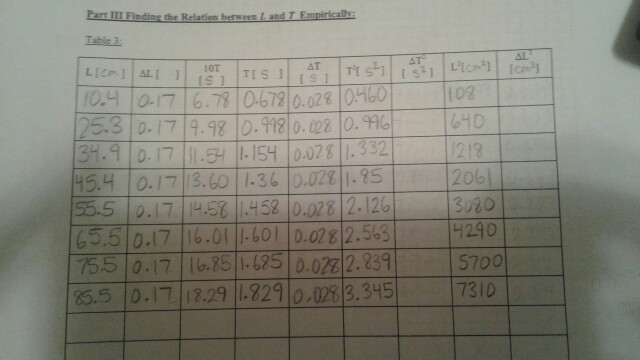 Part III Finding the Relation between L and T Empirically:
Table 3:
L [cm] ΔL [ ] 10T [S] T [S] ΔT [S] T² [S²] ΔT² [S²] L² [cm²] ΔL² [cm²]
10.4 0.17 6.78 0.678 0.028 0.460 108
25.3 0.17 9.98 0.998 0.028 0.996 640
34.9 0.17 11.54 1.154 0.028 1.332 1218
45.4 0.17 13.60 1.36 0.028 1.85 2061
55.5 0.17 14.58 1.458 0.028 2.126 3080
65.5 0.17 16.01 1.601 0.028 2.563 4290
75.5 0.17 16.85 1.685 0.028 2.839 5700
85.5 0.17 18.29 1.829 0.028 3.345 7310